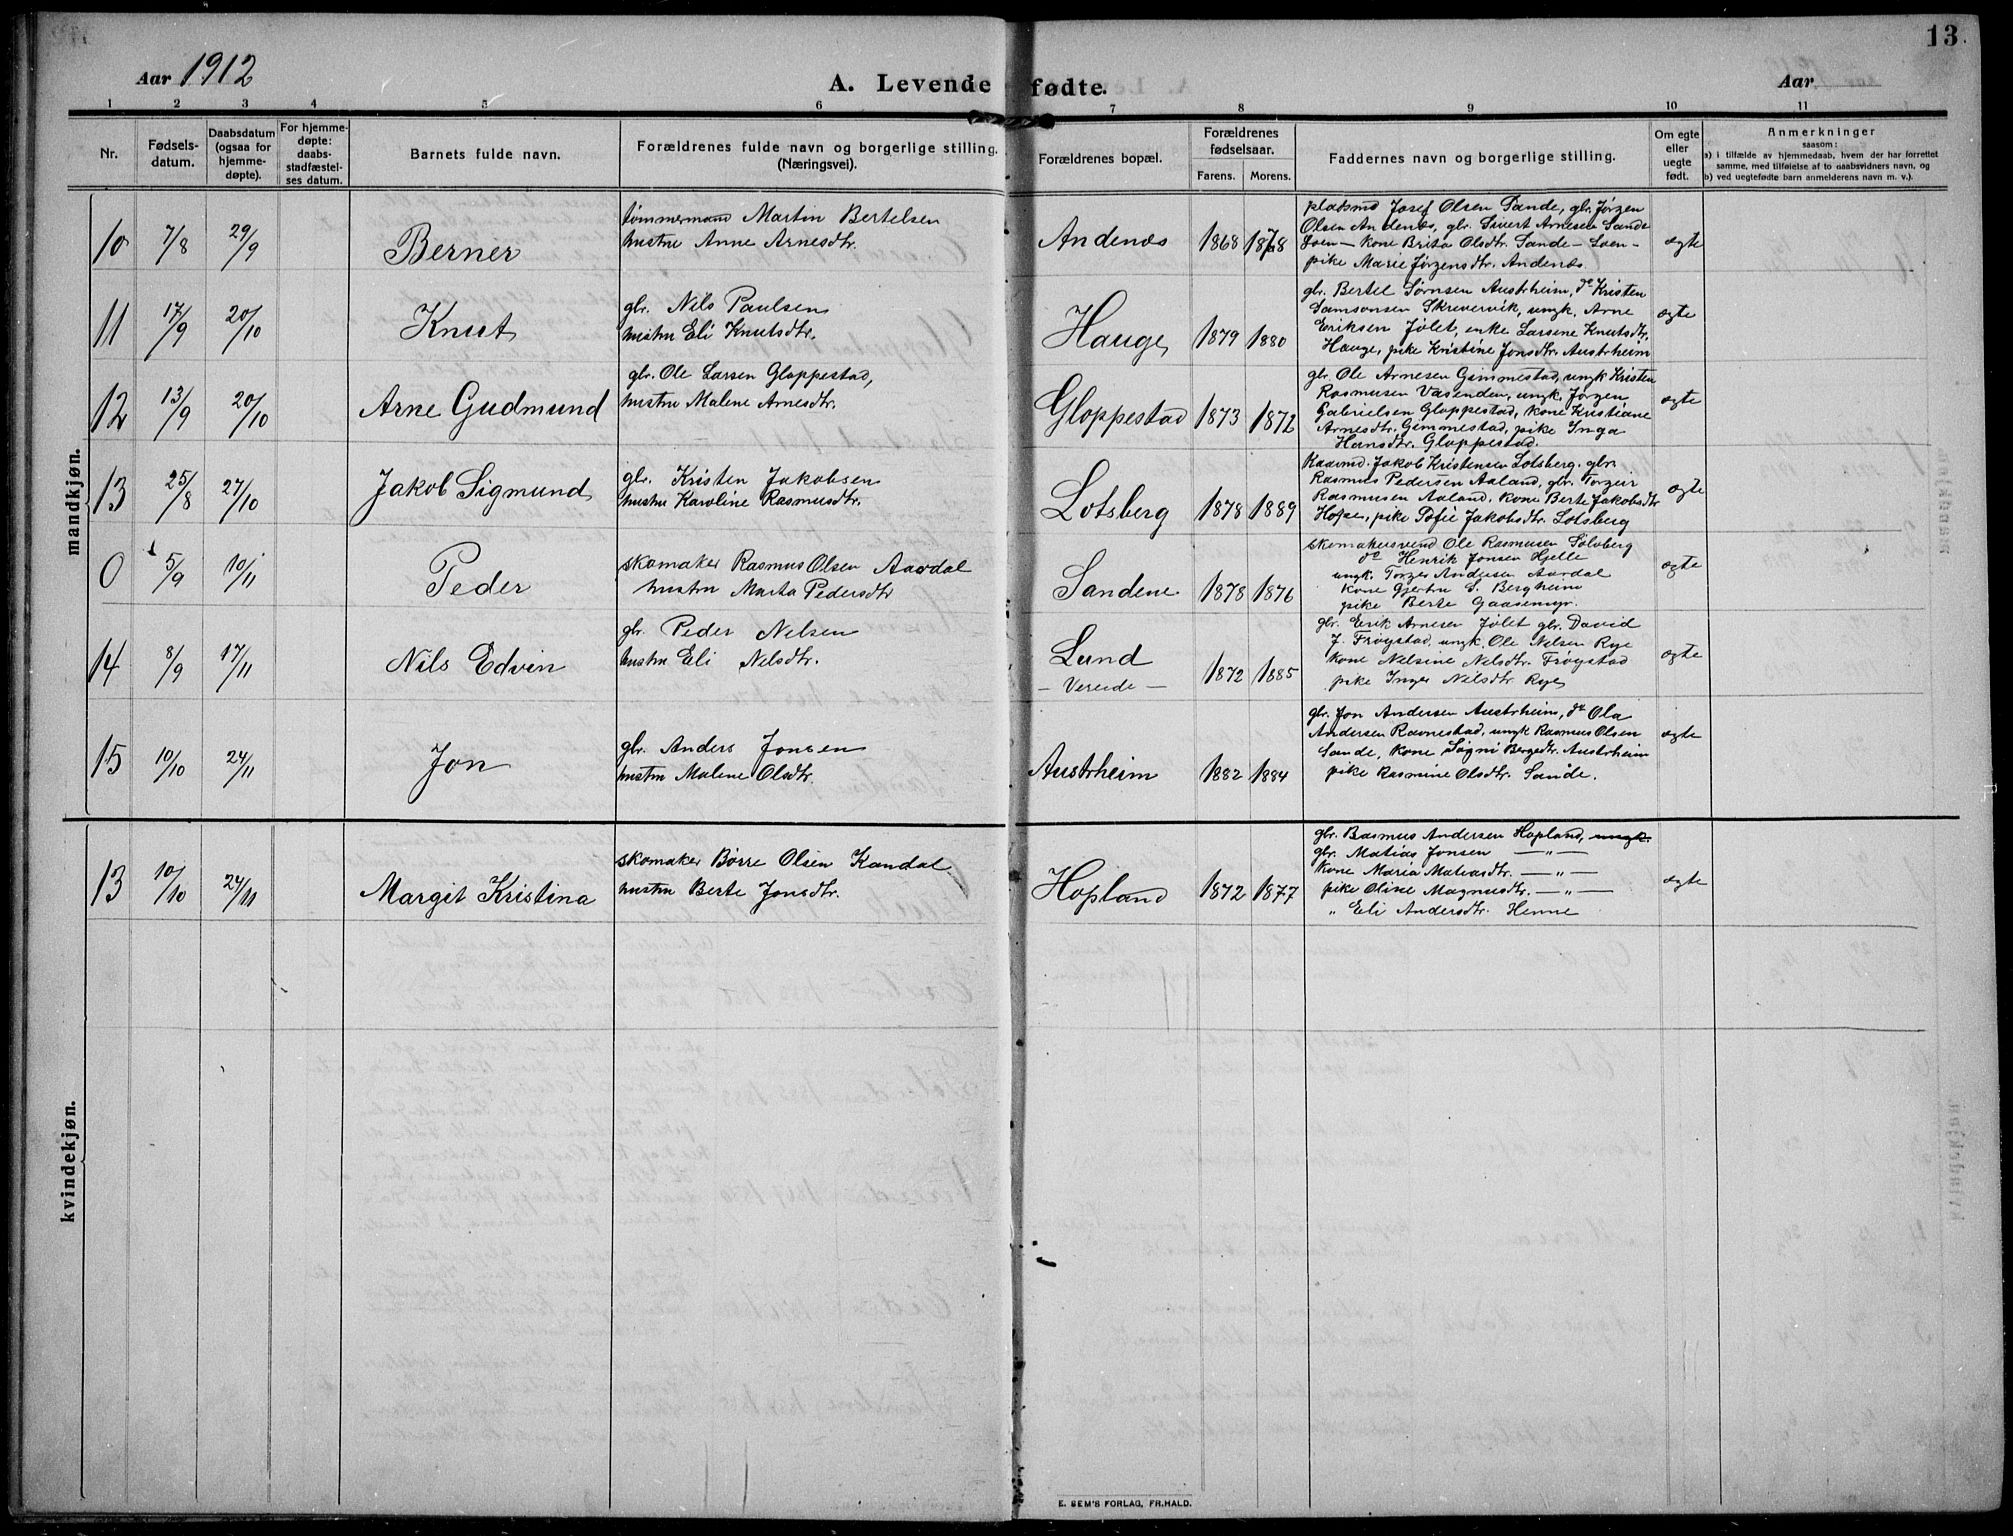 13.
Aar 1912
A. Levende fødte.
Aar
1 2 3 4 5 6 7 8 9 10 11
Nr.
Fødsels-
datum.
Daabsdatum
(ogsaa for
hjemme-
døpte).
For hjemme-
døpte:
daabs-
stadfæstel-
ses datum.
Barnets fulde navn.
Forældrenes fulde navn og borgerlige stilling.
(Næringsvei).
Forældrenes bopæl.
Forældrenes
fødselsaar.
Farens. Morens.
Faddernes navn og borgerlige stilling.
Om egte
eller
uegte
født.
Anmerkninger
saasom:
a) i tilfælde av hjemmedaab, hvem der har forrettet
samme, med tilføielse af to daabsvidners navn, og
b) ved uegtefødte barn anmelderens navn m. v.).
mandkjøn.
10 7/8 29/9 Berner
tømmermand Martin Bertelsen
hustru Anne Arnesdtr.
Andenæs 1868 1878
pladsmd Josef Olsen Sande, gbr. Jørgen
Olsen Andenæs, gbr. Sivert Arnesen Sande
Loen - kone Brita Olsdtr. Sande - Loen -
pike Marie Jørgensdtr. Andenæs.
ægte
11 17/9 20/10 Knut
gbr. Nils Paulsen
hustru Eli Knutsdtr.
Hauge 1879 1880
gbr. Bertel Sørnsen Austrheim, do Kristen
Samsonsen Skrevervik, ungk. Arne
Eriksen Jølet, enke Larsene Knutsdtr.
Hauge, pike Kristine Jonsdtr. Austrheim
ægte
12 13/9 20/10 Arne Gudmund
gbr. Ole Larsen Gloppestad,
hustru Malene Arnesdtr.
Gloppestad 1873 1872
gbr. Ole Arnesen Gimmestad, ungk Kristen
Rasmusen Vasenden, ungk. Jørgen
Gabrielsen Gloppestad, kone Kristiane
Arnesdtr. Gimmestad, pike Inga
Hansdtr. Gloppestad.
ægte
13 25/8 27/10 Jakob Sigmund
gbr. Kristen Jakobsen
hustru Karoline Rasmusdtr.
Lotsberg 1878 1889
Kaarmd. Jakob Kristensen Lotsberg. gbr.
Rasmus Pedersen Aaland, gbr. Torgeir
Rasmusen Aaland, kone Berte Jakobsdtr
Hope, pike Sofie Jakobsdtr. Lotsberg
ægte
0 5/9 10/11 Peder
skomaker Rasmus Olsen Aardal
hustru Marta Pedersdtr
Sandene 1878 1876
skomakersvend Ole Rasmusen Sølvberg
do Henrik Jonsen Hjelle
ungk. Torger Andersen Aardal
kone Gjertru S. Bergheim
pike Berte Gaasemyr.
ægte
14 8/9 17/11 Nils Edvin
gbr. Peder Nelsen
hustru Eli Nelsdtr.
Lund
- Vereide -
1872 1885
gbr. Erik Arnesen Jølet gbr. David
J. Frøystad, ungk Ole Nelsen Rye
kone Nelsine Nilsdtr. Frøystad
pike Inger Nilsdtr. Rye
ægte
15 10/10 24/11 Jon
gbr. Anders Jonsen
hustru Malene Olsdtr.
Austrheim 1882 1884
gbr. Jon Andersen Austrheim, do Ola
Andersen Ravnestad, ungk Rasmus Olsen
Sande, kone Signi Bergedtr. Austrheim
pike Rasmine Olsdtr. Sande.
ægte
kvindekjøn.
13 10/10 24/11 Margit Kristina
skomaker Børre Olsen Kandal
hustru Berte Jonsdtr.
Hopland 1872 1877
gbr. Rasmus Andersen Hopland, ungk.
gbr. Matias Jonsen — „ —
kone Maria Matiasdtr. — „ —
pike Oline Magnusdtr. — „ —
„ Eli Andersdtr. Henne
ægte
E. SEM'S FORLAG, FR.HALD.